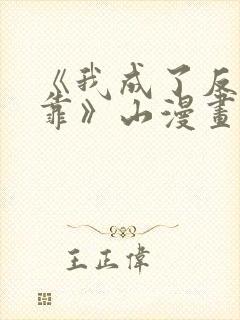 《我成了反
靠》山漫畫
王正偉